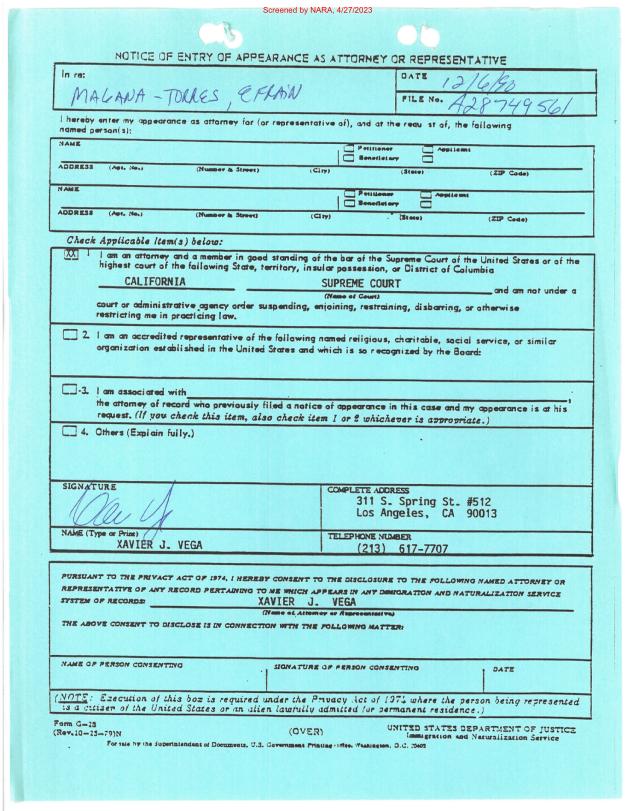 Screened by NARA, 4/27/2023
NOTICE OF ENTRY OF APPEARANCE AS ATTORNEY OR REPRESENTATIVE
In re:
MAGANA-TORRES, EFRAIN
DATE 12/6/90
FILE No. A28749561
I hereby enter my appearance as attorney for (or representative of), and at the request of, the following
named person(s):
NAME
Petitioner Applicant
Beneficiary
ADDRESS (Apt. No.) (Number & Street) (City) (State) (ZIP Code)
NAME
Petitioner Applicant
Beneficiary
ADDRESS (Apt. No.) (Number & Street) (City) (State) (ZIP Code)
Check Applicable Item(s) below:
XX 1 I am an attorney and a member in good standing of the bar of the Supreme Court of the United States or of the
highest court of the following State, territory, insular possession, or District of Columbia
CALIFORNIA SUPREME COURT and am not under a
(Name of Court)
court or administrative agency order suspending, enjoining, restraining, disbarring, or otherwise
restricting me in practicing law.
2. I am an accredited representative of the following named religious, charitable, social service, or similar
organization established in the United States and which is so recognized by the Board:
3. I am associated with ,
the attorney of record who previously filed a notice of appearance in this case and my appearance is at his
request. (If you check this item, also check item 1 or 2 whichever is appropriate.)
4. Others (Explain fully.)
SIGNATURE
COMPLETE ADDRESS
311 S. Spring St. #512
Los Angeles, CA 90013
NAME (Type or Print)
XAVIER J. VEGA
TELEPHONE NUMBER
(213) 617-7707
PURSUANT TO THE PRIVACY ACT OF 1974, I HEREBY CONSENT TO THE DISCLOSURE TO THE FOLLOWING NAMED ATTORNEY OR
REPRESENTATIVE OF ANY RECORD PERTAINING TO ME WHICH APPEARS IN ANY IMMIGRATION AND NATURALIZATION SERVICE
SYSTEM OF RECORDS: XAVIER J. VEGA
(Name of Attorney or Representative)
THE ABOVE CONSENT TO DISCLOSE IS IN CONNECTION WITH THE FOLLOWING MATTER:
NAME OF PERSON CONSENTING SIGNATURE OF PERSON CONSENTING DATE
(NOTE: Execution of this box is required under the Privacy Act of 1974 where the person being represented
is a citizen of the United States or an alien lawfully admitted for permanent residence.)
Form G-28
(Rev.10-25-79)N
(OVER)
UNITED STATES DEPARTMENT OF JUSTICE
Immigration and Naturalization Service
For sale by the Superintendent of Documents, U.S. Government Printing Office, Washington, D.C. 20402